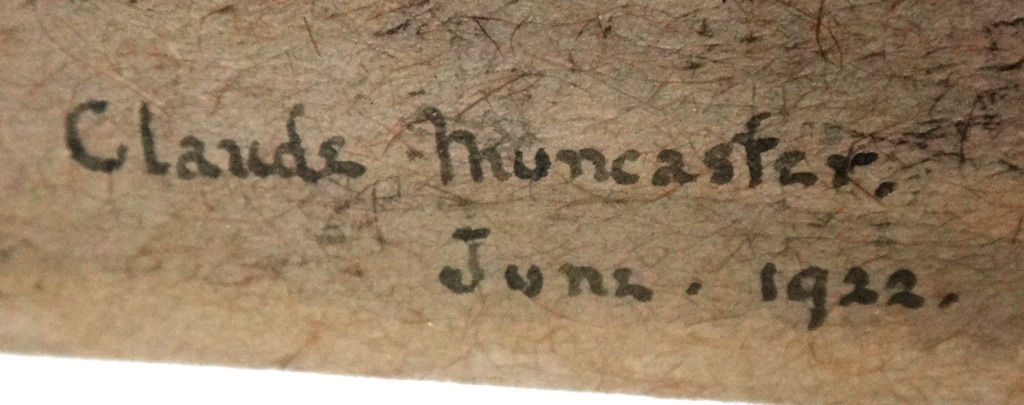 Claude Muncaster.
June. 1922.